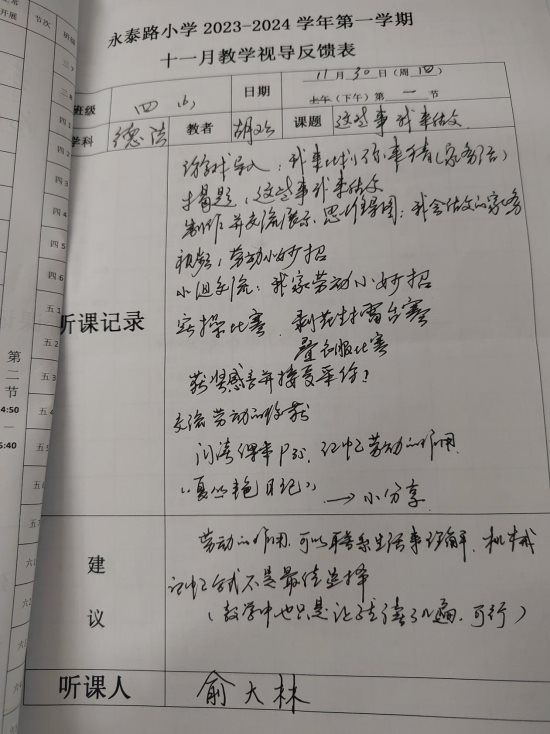 永泰路小学 2023-2024 学年第一学期
十一月教学视导反馈表
班级 四 日期 11月30日(周四)
上午(下午)第一节
学科 德法 教者 课题 这些事我来做
导入:我来 事情(家务活)
揭题,这些事我来做
制作并交流展示,思维导图:我会做的家务
视频,劳动小妙招
小组交流:我家劳动小妙招
听课记录
实操比赛 剥花生擂台赛
叠衣服比赛
获奖感言并接受采访!
交流劳动的
课本P35,记忆劳动的作用
日记》 → 小分享
建议
劳动的作用,可以联系生活来理解,机械
记忆方式不是最佳选择
(教学中也只是让 读了几遍,可行)
听课人 俞大林
节次 班级
三 7
三 8
四 1
四 2
四 3
四 4
四 5
四 6
五 1
五 2
五 3
五 4
第二节
4:50
5:40